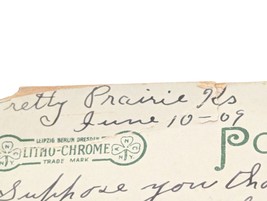 Pretty Prairie Ks
June 10-09
LEIPZIG BERLIN DRESDEN
LITHO-CHROME
TRADE MARK
N Y
N Y
Po
Suppose you tho